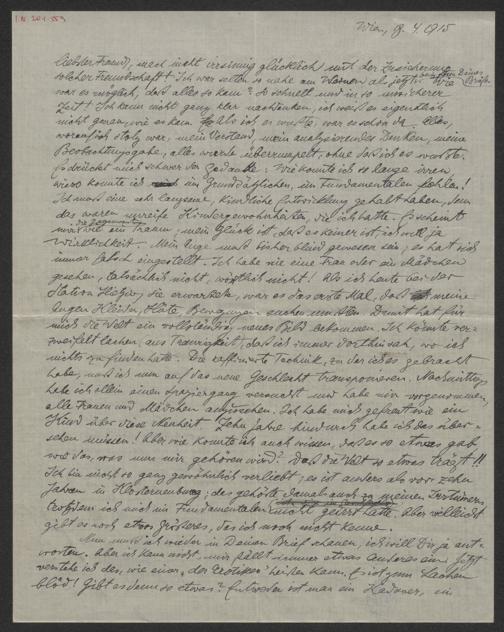 I.N. 201.559
Wien, 8. 4. 1915
liebster Freund, mach mich nicht unsinnig glücklich mit der Zusicherung
solcher Freundschaft! Ich war selten so nahe am Weinen als jetzt Wie
war es möglich, daß alles so kam? So schnell und in so unsicherer
Zeit! Ich kann nicht ganz klar nachdenken, ich weiß es eigentlich
nicht genau, wie es kam als ich es wußte, war es schon da. Alles,
worauf ich stolz war, mein Verstand, mein analysierendes Denken, meine
Beobachtungsgabe, alles wurde überrumpelt, ohne daß ich es wußte.
Es drückt mich schwer der Gedanke: Wie konnte ich so lange irren
wieso konnte ich im Grundsätzlichen, im Fundamentalen fehlen!
Ich muß eine sehr langsame, kindliche Entwicklung gehabt haben, denn
das waren unreife Kindergewohnheiten, die ich hatte. Es scheint
mir wie ein Traum; mein Glück ist, daß es keiner ist, ich will ja
Wirklichkeit. Mein Auge muß bisher blind gewesen sein, es hat sich
immer falsch eingestellt. Ich habe nie eine Frau oder ein Mädchen
gesehen, tatsächlich nicht, wirklich nicht! Als ich heute bei der
Station Hietzing, sie erwartete, war es das erste Mal, daß meine
Augen Kleider, Hüte, Bewegungen suchen mußten. Damit hat für
mich die Welt ein vollständig neues Bild bekommen. Ich könnte ver-
zweifelt lachen, aus Traurigkeit, daß ich immer dorthin sah, wo ich
nichts zu finden hatte. Die raffinierte Technik, zu der ich es gebracht
habe, muß ich nun auf das neue Geschlecht transponieren. Nachmittag
habe ich allein einen Spaziergang versucht und habe mir vorgenommen,
alle Frauen und Mädchen anzusehen. Ich habe mich gefreut wie ein
Kind über diese Neuheit. Zehn Jahre hindurch habe ich das über-
sehen müssen! Aber wie konnte ich auch wissen, daß es so etwas gab
wie das, was nun mir gehören wird? Daß die Welt so etwas trägt!!
Ich bin nicht so ganz gewöhnlich verliebt; es ist anders als vor zehn
Jahren in Klosterneuburg; das gehörte damals auch zu meinen Irrtümern,
trotzdem ich mich im Fundamentalen nicht geirrt hatte. Aber vielleicht
gibt es noch etwas Größeres, das ich noch nicht kenne.
Nun muß ich wieder in Deinen Brief schauen, ich will Dir ja ant-
worten. Aber ich kann nicht, mir fällt immer etwas Anderes ein. Jetzt
verstehe ich den, wie einer, der Erotiker heißen kann. Es ist zum Lachen
blöd! Gibt es denn so etwas? Entweder ist man ein Kastrer, ein